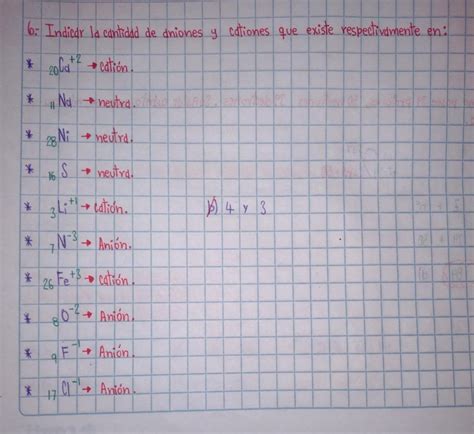 6.- Indicar la cantidad de aniones y cationes que existe respectivamente en:
* ₂₀Ca⁺² → catión.
* ₁₁Na → neutra.
* ₂₈Ni → neutra.
* ₁₆S → neutra.
* ₃Li⁺¹ → catión. b) 4 y 3
* ₇N⁻³ → Anión.
* ₂₆Fe⁺³ → catión.
* ₈O⁻² → Anión.
* ₉F⁻¹ → Anión.
* ₁₇Cl⁻¹ → Anión.